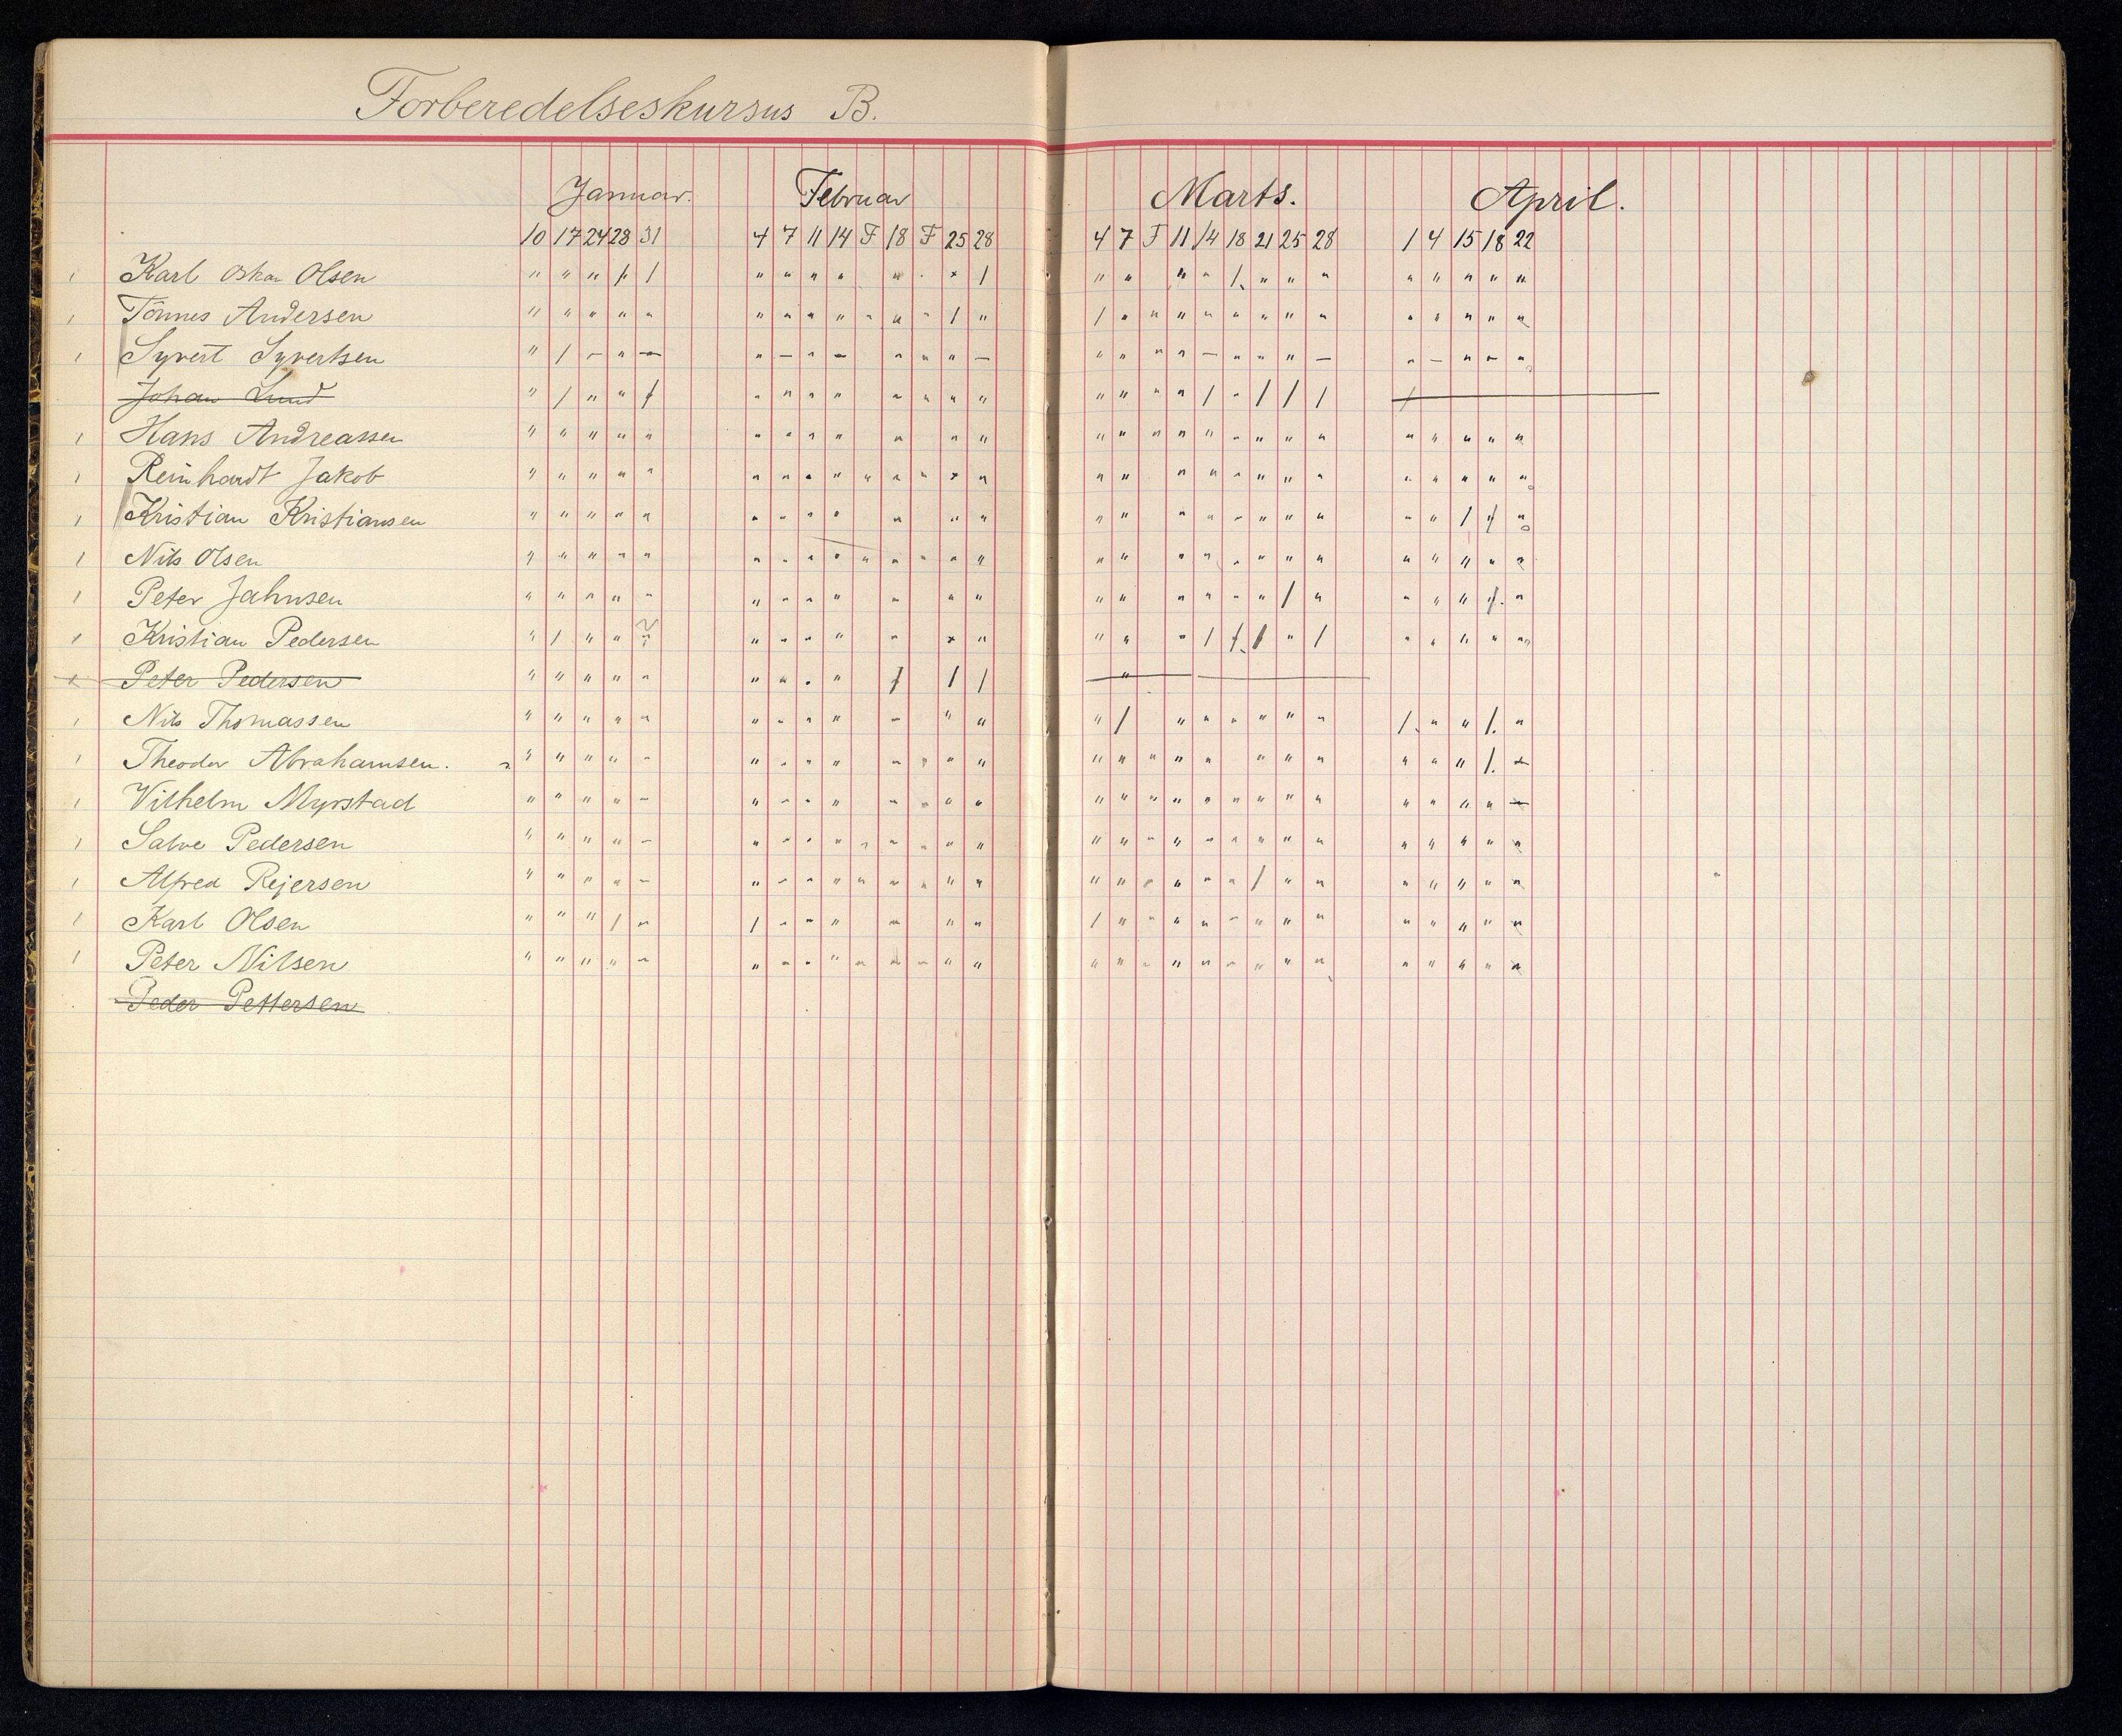 Forberedelseskursus B.
Januar. Februar Marts. April.
10 17 24 28 31 4 7 11 14 F 18 F 25 28 4 7 F 11 14 18 21 25 28 1 4 15 18 22
Karl Oskar Olsen
Tönnes Andersen
Syvert Syvertsen
Johan Lund
Hans Andreassen
Reinhardt Jakob
Kristian Kristiansen
Nils Olsen
Peter Jahnsen
Kristian Pedersen
Peter Pedersen
Nils Thomassen
Theodor Abrahamsen.
Vilhelm Myrstad
Salve Pedersen
Alfred Rejersen
Karl Olsen
Peter Nilsen
Peder Pettersen